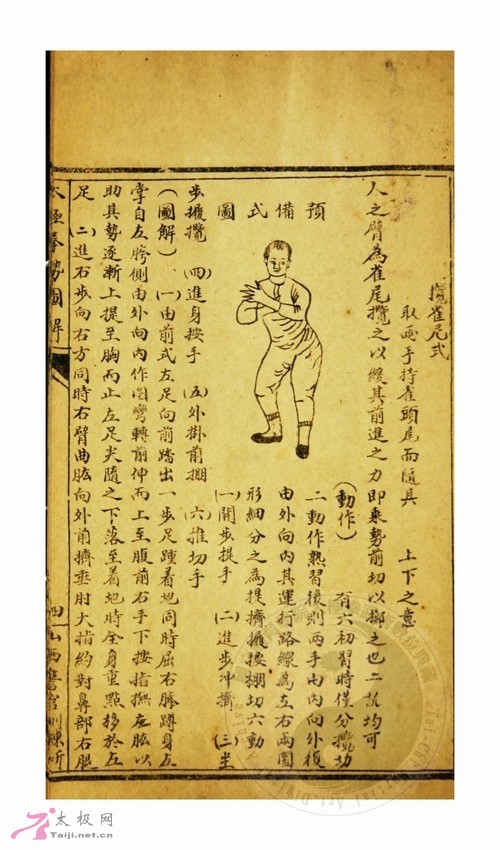 攬雀尾式
取兩手持雀頭尾而隨其 上下之意
人之臂為雀尾攬之以緩其前進之力即乘勢前切以擲之也二說均可
預備式圖
(動作) 有六初習時僅分攬切
二動作熟習後則兩手由內向外復
由外向內其運行路線為左右兩圜
形細分之為提擠攦按掤切六動
(一)開步提手 (二)進步冲擠 (三)坐
步攦攬 (四)進身按手 (五)外掛前掤 (六)推切手
(圖解) (一)由前式左足向前踏出一步足踵着地同時屈右膝蹲身左
掌自左胯側由外向內作圓彎轉前伸而上至腹前右手下按指撫左肱以
助其勢逐漸上提至胸而止左足尖隨之下落至着地時全身重點移於左
足 (二)進右步向右方同時右臂曲肱向外前擠垂肘大指約對鼻部右腿
太極拳勢圖解
四
山西警官訓練所
太极网
Taiji.net.cn